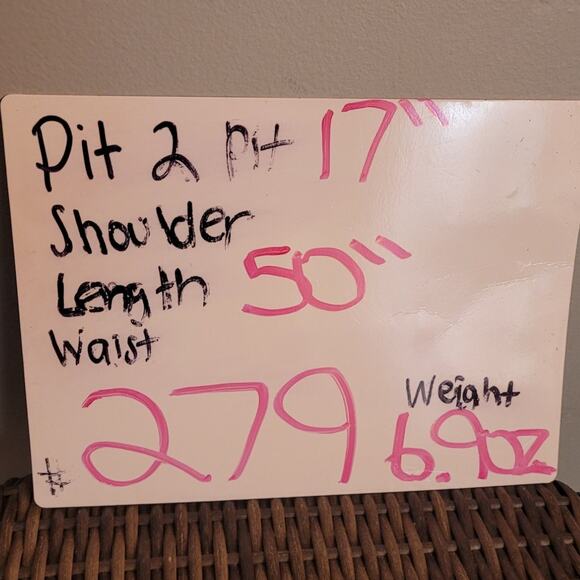 Pit 2 Pit 17"
Shoulder
Length 50"
Waist
# 279
Weight
6.9oz